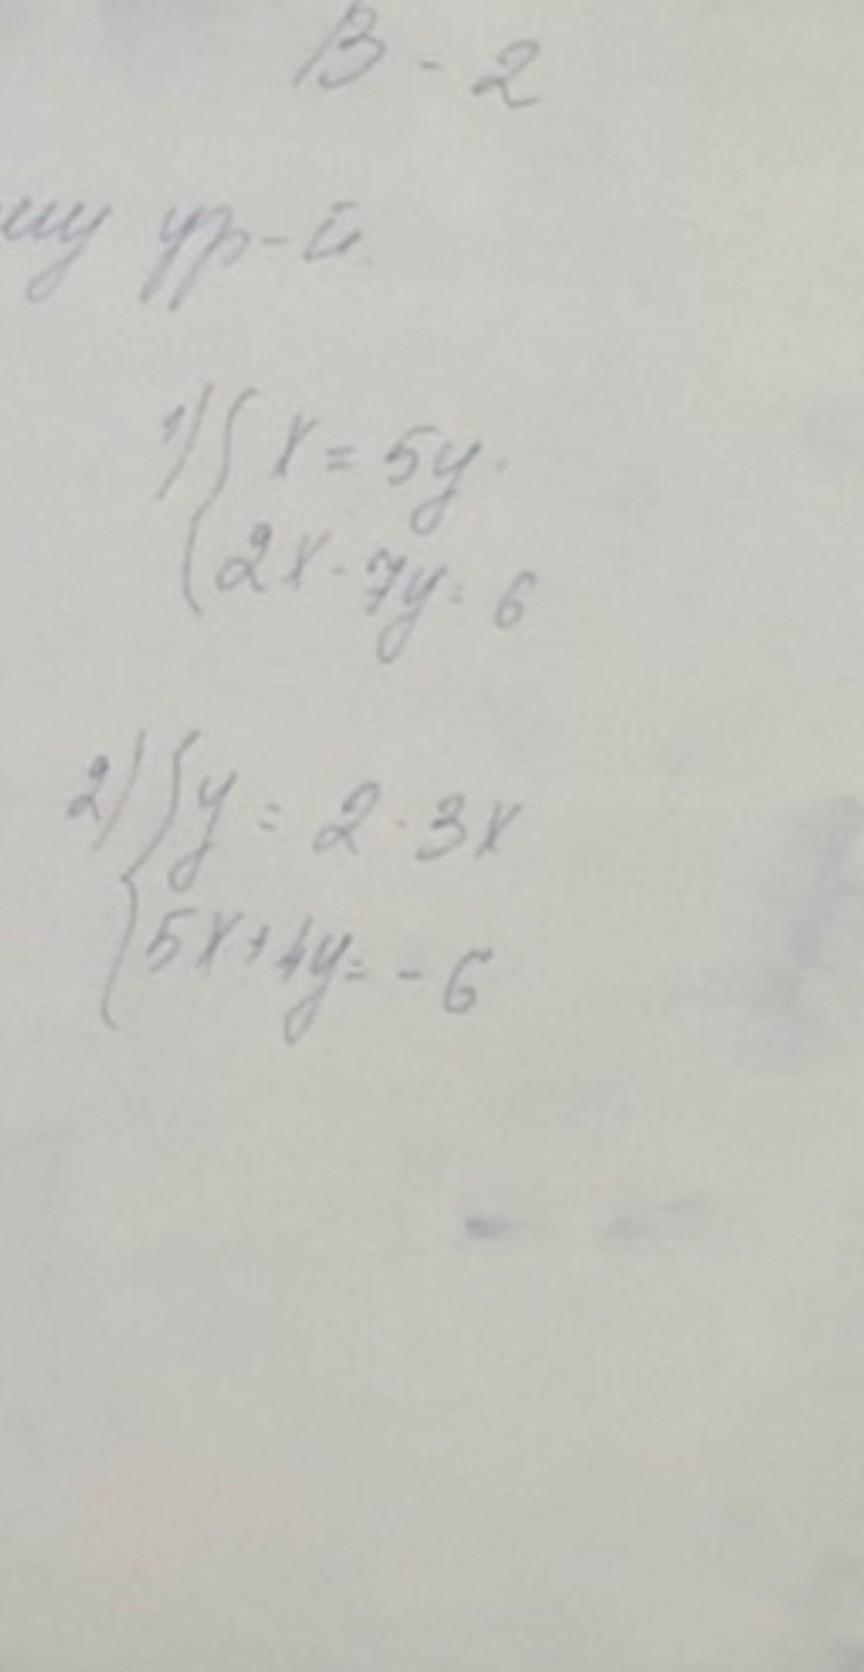 В - 2
ур-й
1) { x = 5y
2x - 7y = 6
2) { y = 2 - 3x
5x + 4y = - 6